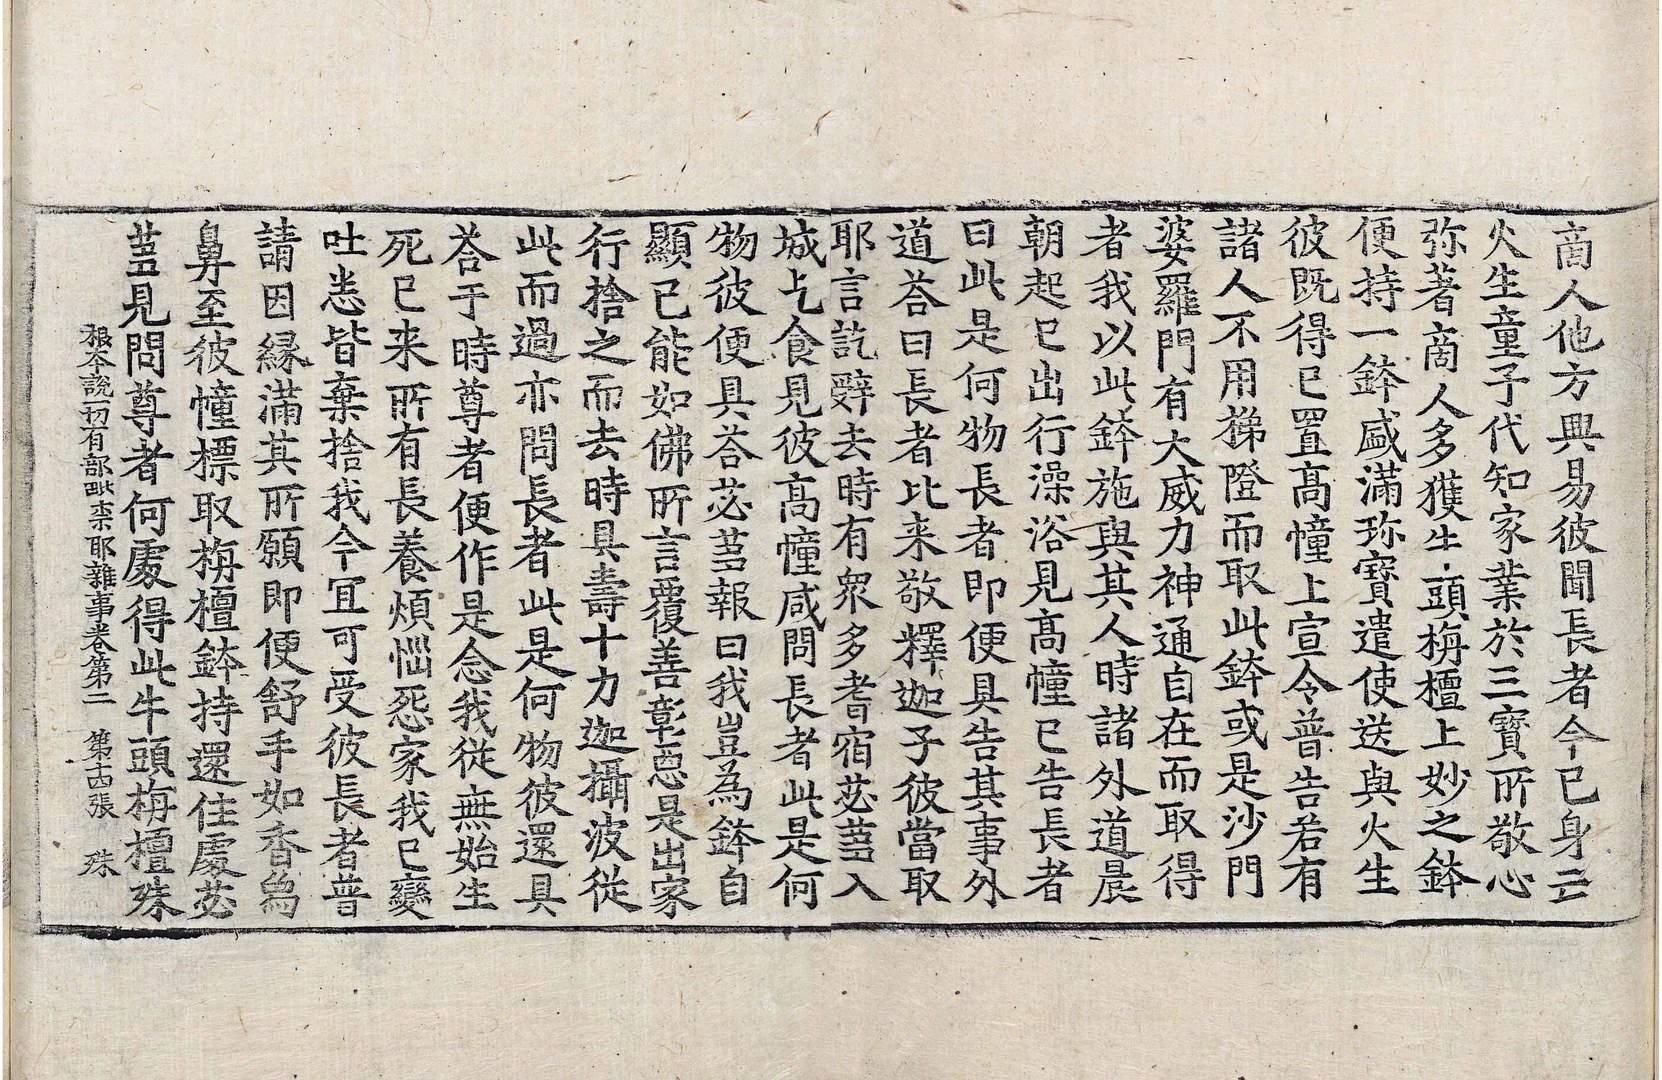 啇人他方興易彼聞長者今已身亡
火生童子代知家業於三寶所敬心
弥著啇人多獲牛頭栴檀上妙之鉢
便持一鉢盛滿珎寶遣使送與火生
彼既得已置髙幢上宣令普告若有
諸人不用梯隥而取此鉢或是沙門
婆羅門有大威力神通自在而取得
者我以此鉢施與其人時諸外道晨
朝起已出行澡浴見髙幢已告長者
曰此是何物長者即便具告其事外
道荅曰長者比来敬釋迦子彼當取
耶言訖辭去時有衆多耆宿苾蒭入
城乞食見彼髙幢咸問長者此是何
物彼便具荅苾蒭報曰我豈為鉢自
顯已能如佛所言覆善彰惡是出家
行捨之而去時具壽十力迦攝波從
此而過亦問長者此是何物彼還具
荅于時尊者便作是念我從無始生
死已来所有長養煩惱怨家我已變
吐悉皆棄捨我今冝可受彼長者普
請因縁滿其所願即便舒手如香為
鼻至彼幢標取栴檀鉢持還住處苾
蒭見問尊者何處得此牛頭栴檀殊
根本說一切有部毗柰耶雜事卷第二　第十四張　殊